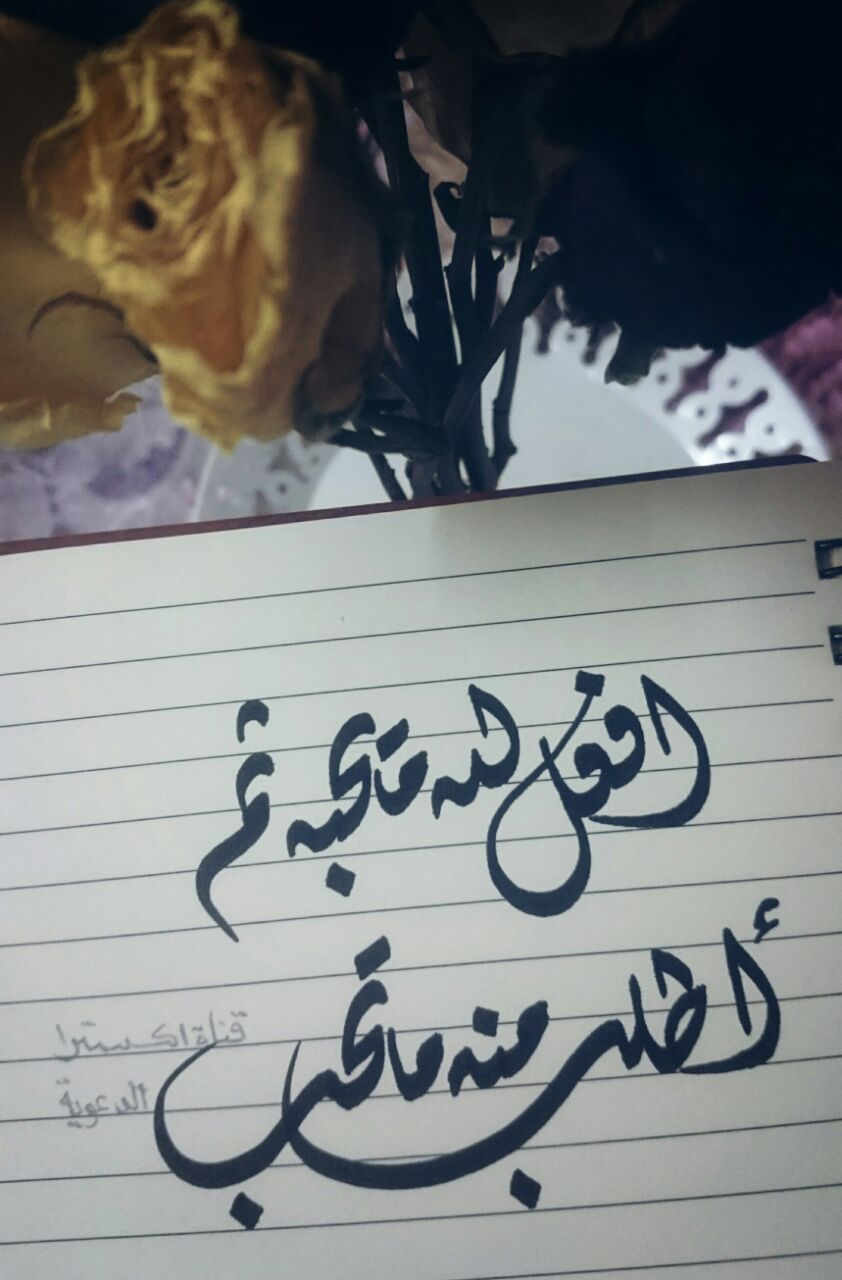 افعل لله ما يحبه ثم
أطلب منه ما تحب
قناة اكسترا
الدعوية